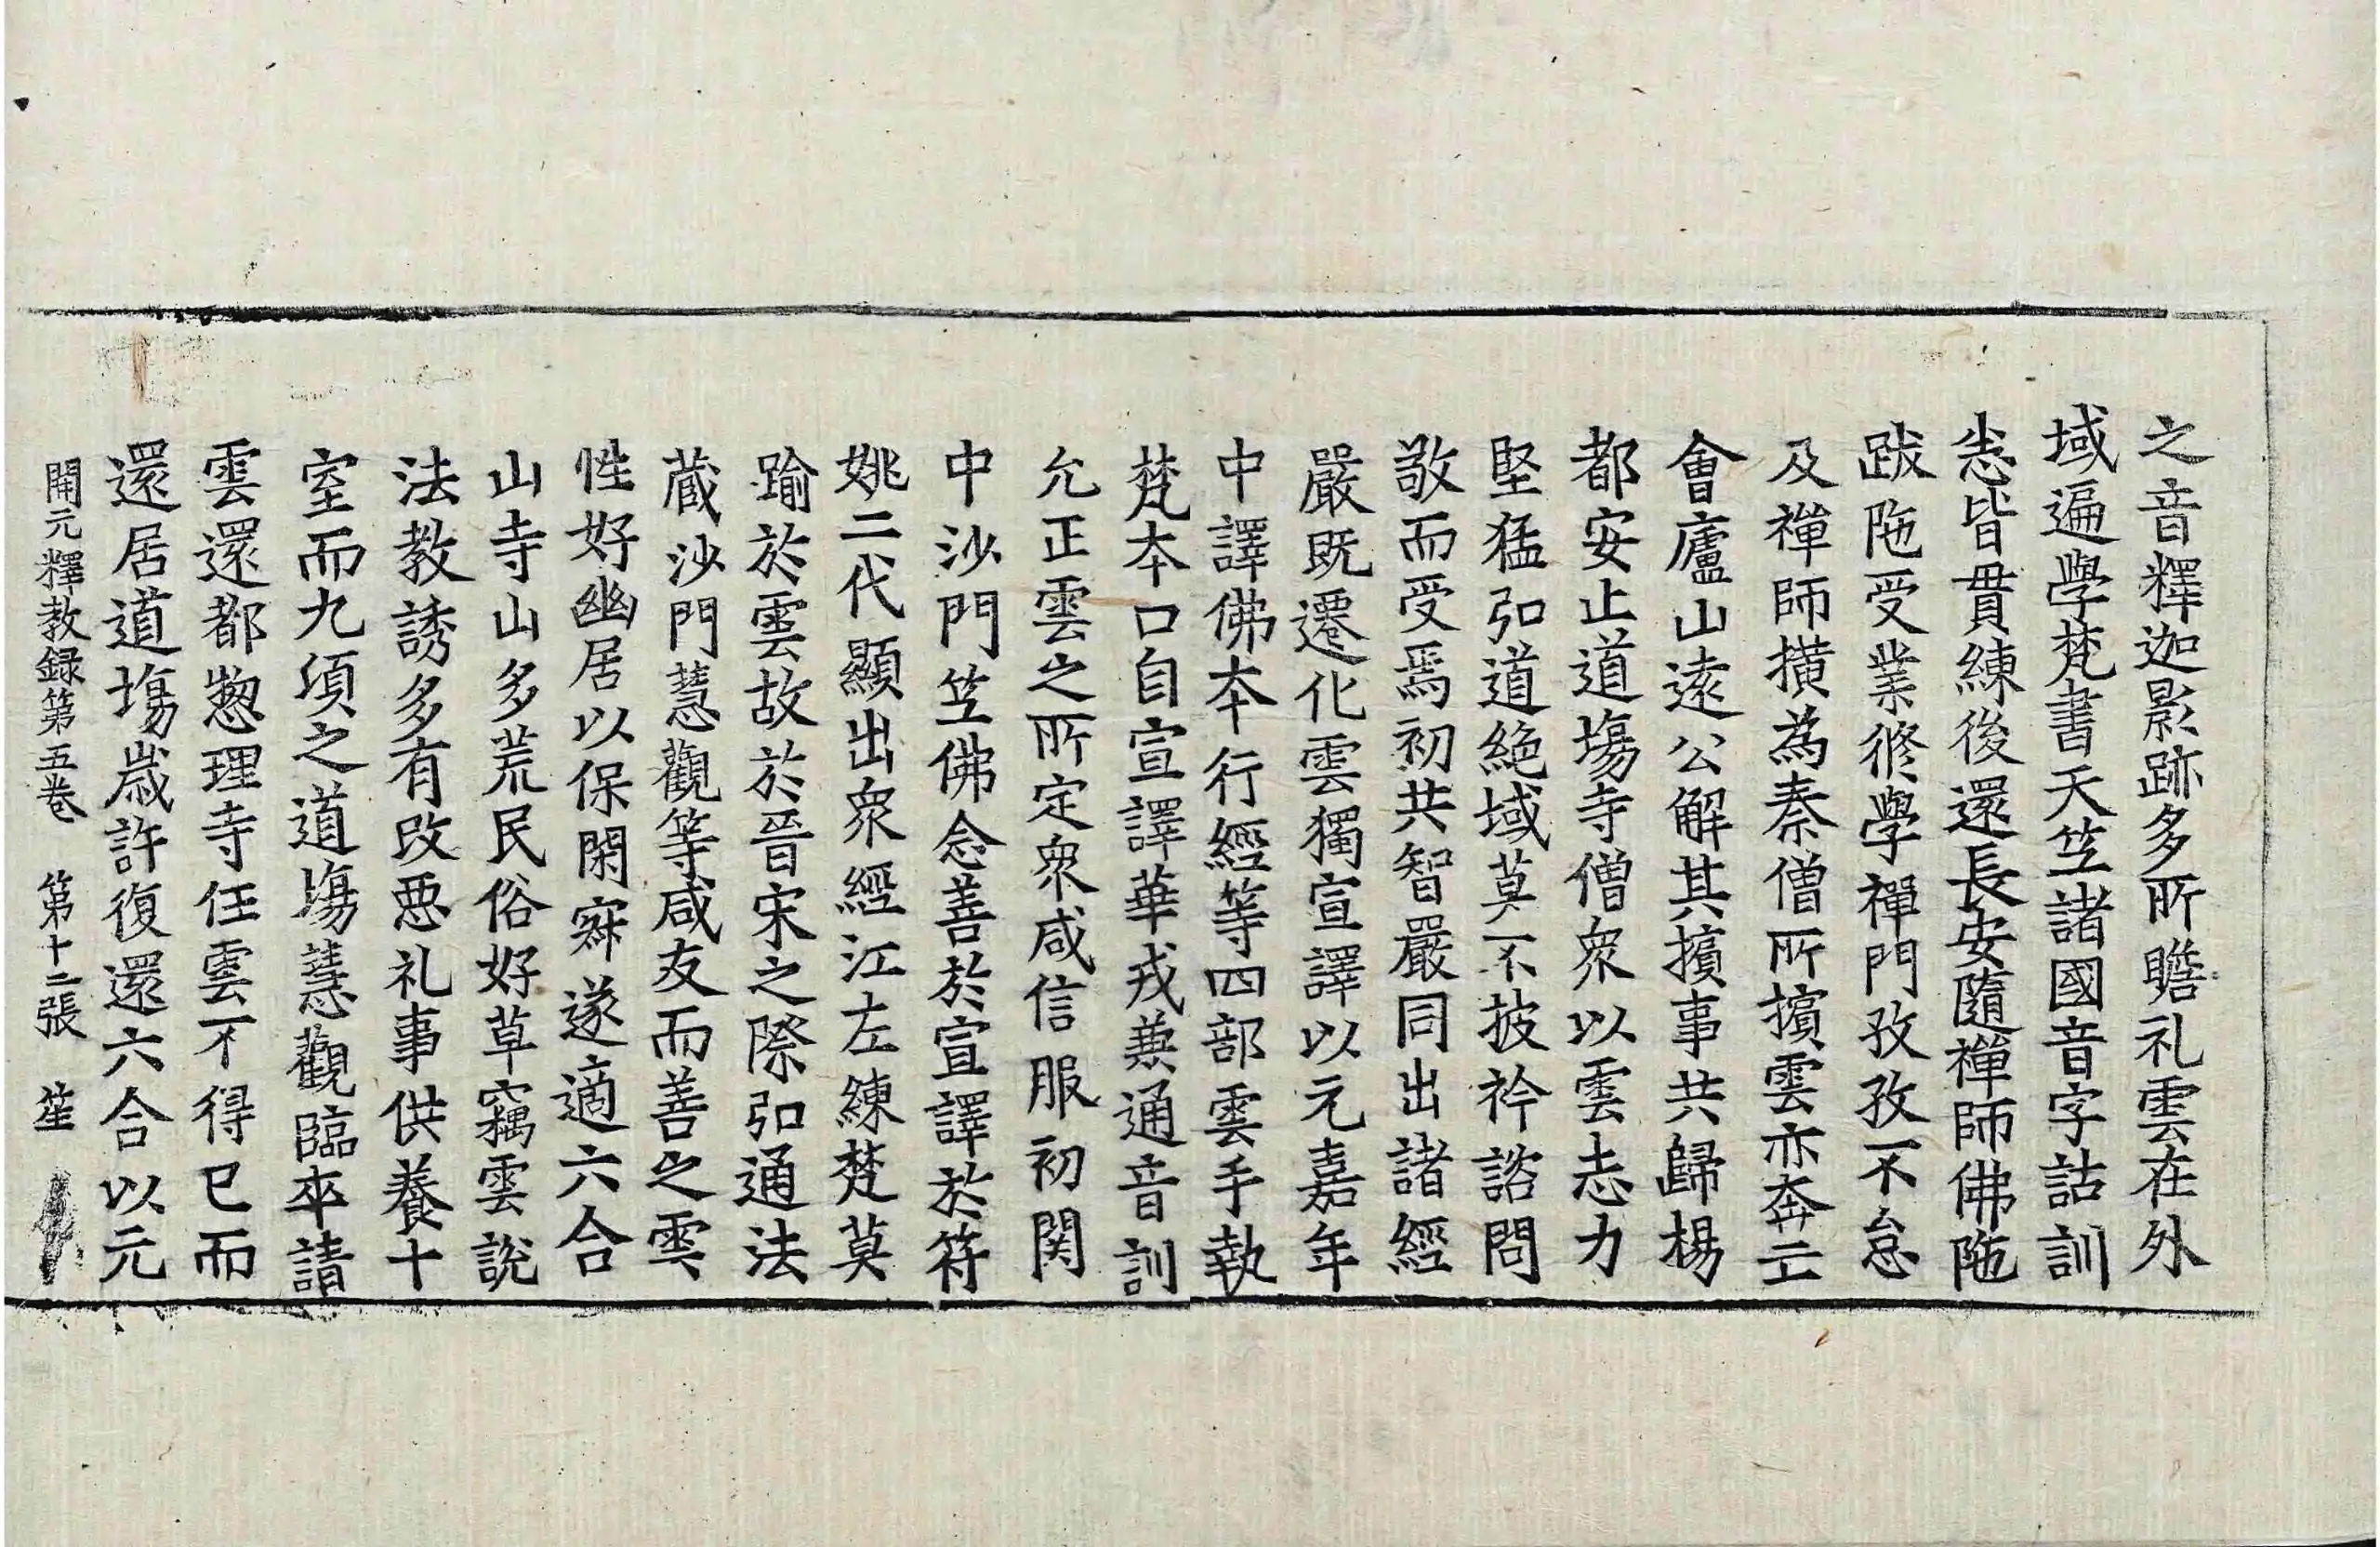 之音釋迦影跡多所瞻礼雲在外
域遍學梵書天竺諸國音字詁訓
悉皆貫練後還長安隨禪師佛陁
跋陁受業修學禪門孜孜不怠
及禪師撗為秦僧所擯雲亦奔亡
會廬山遠公解其擯事共歸楊
都安止道場寺僧衆以雲志力
堅猛弘道絶域莫不披衿諮問
敬而受焉初共智嚴同出諸經
嚴既遷化雲獨宣譯以元嘉年
中譯佛本行經等四部雲手執
梵本口自宣譯華戎兼通音訓
允正雲之所定衆咸信服初関
中沙門竺佛念善於宣譯於符
姚二代顯出衆經江左練梵莫
踰於雲故於晉宋之際弘通法
蔵沙門慧觀等咸友而善之雲
性好幽居以保閑寂遂適六合
山寺山多荒民俗好草竊雲說
法教誘多有改惡礼事供養十
室而九頃之道場慧觀臨卒請
雲還都揔理寺任雲不得已而
還居道場歳許復還六合以元
開元釋教録第五卷　第十二張　笙